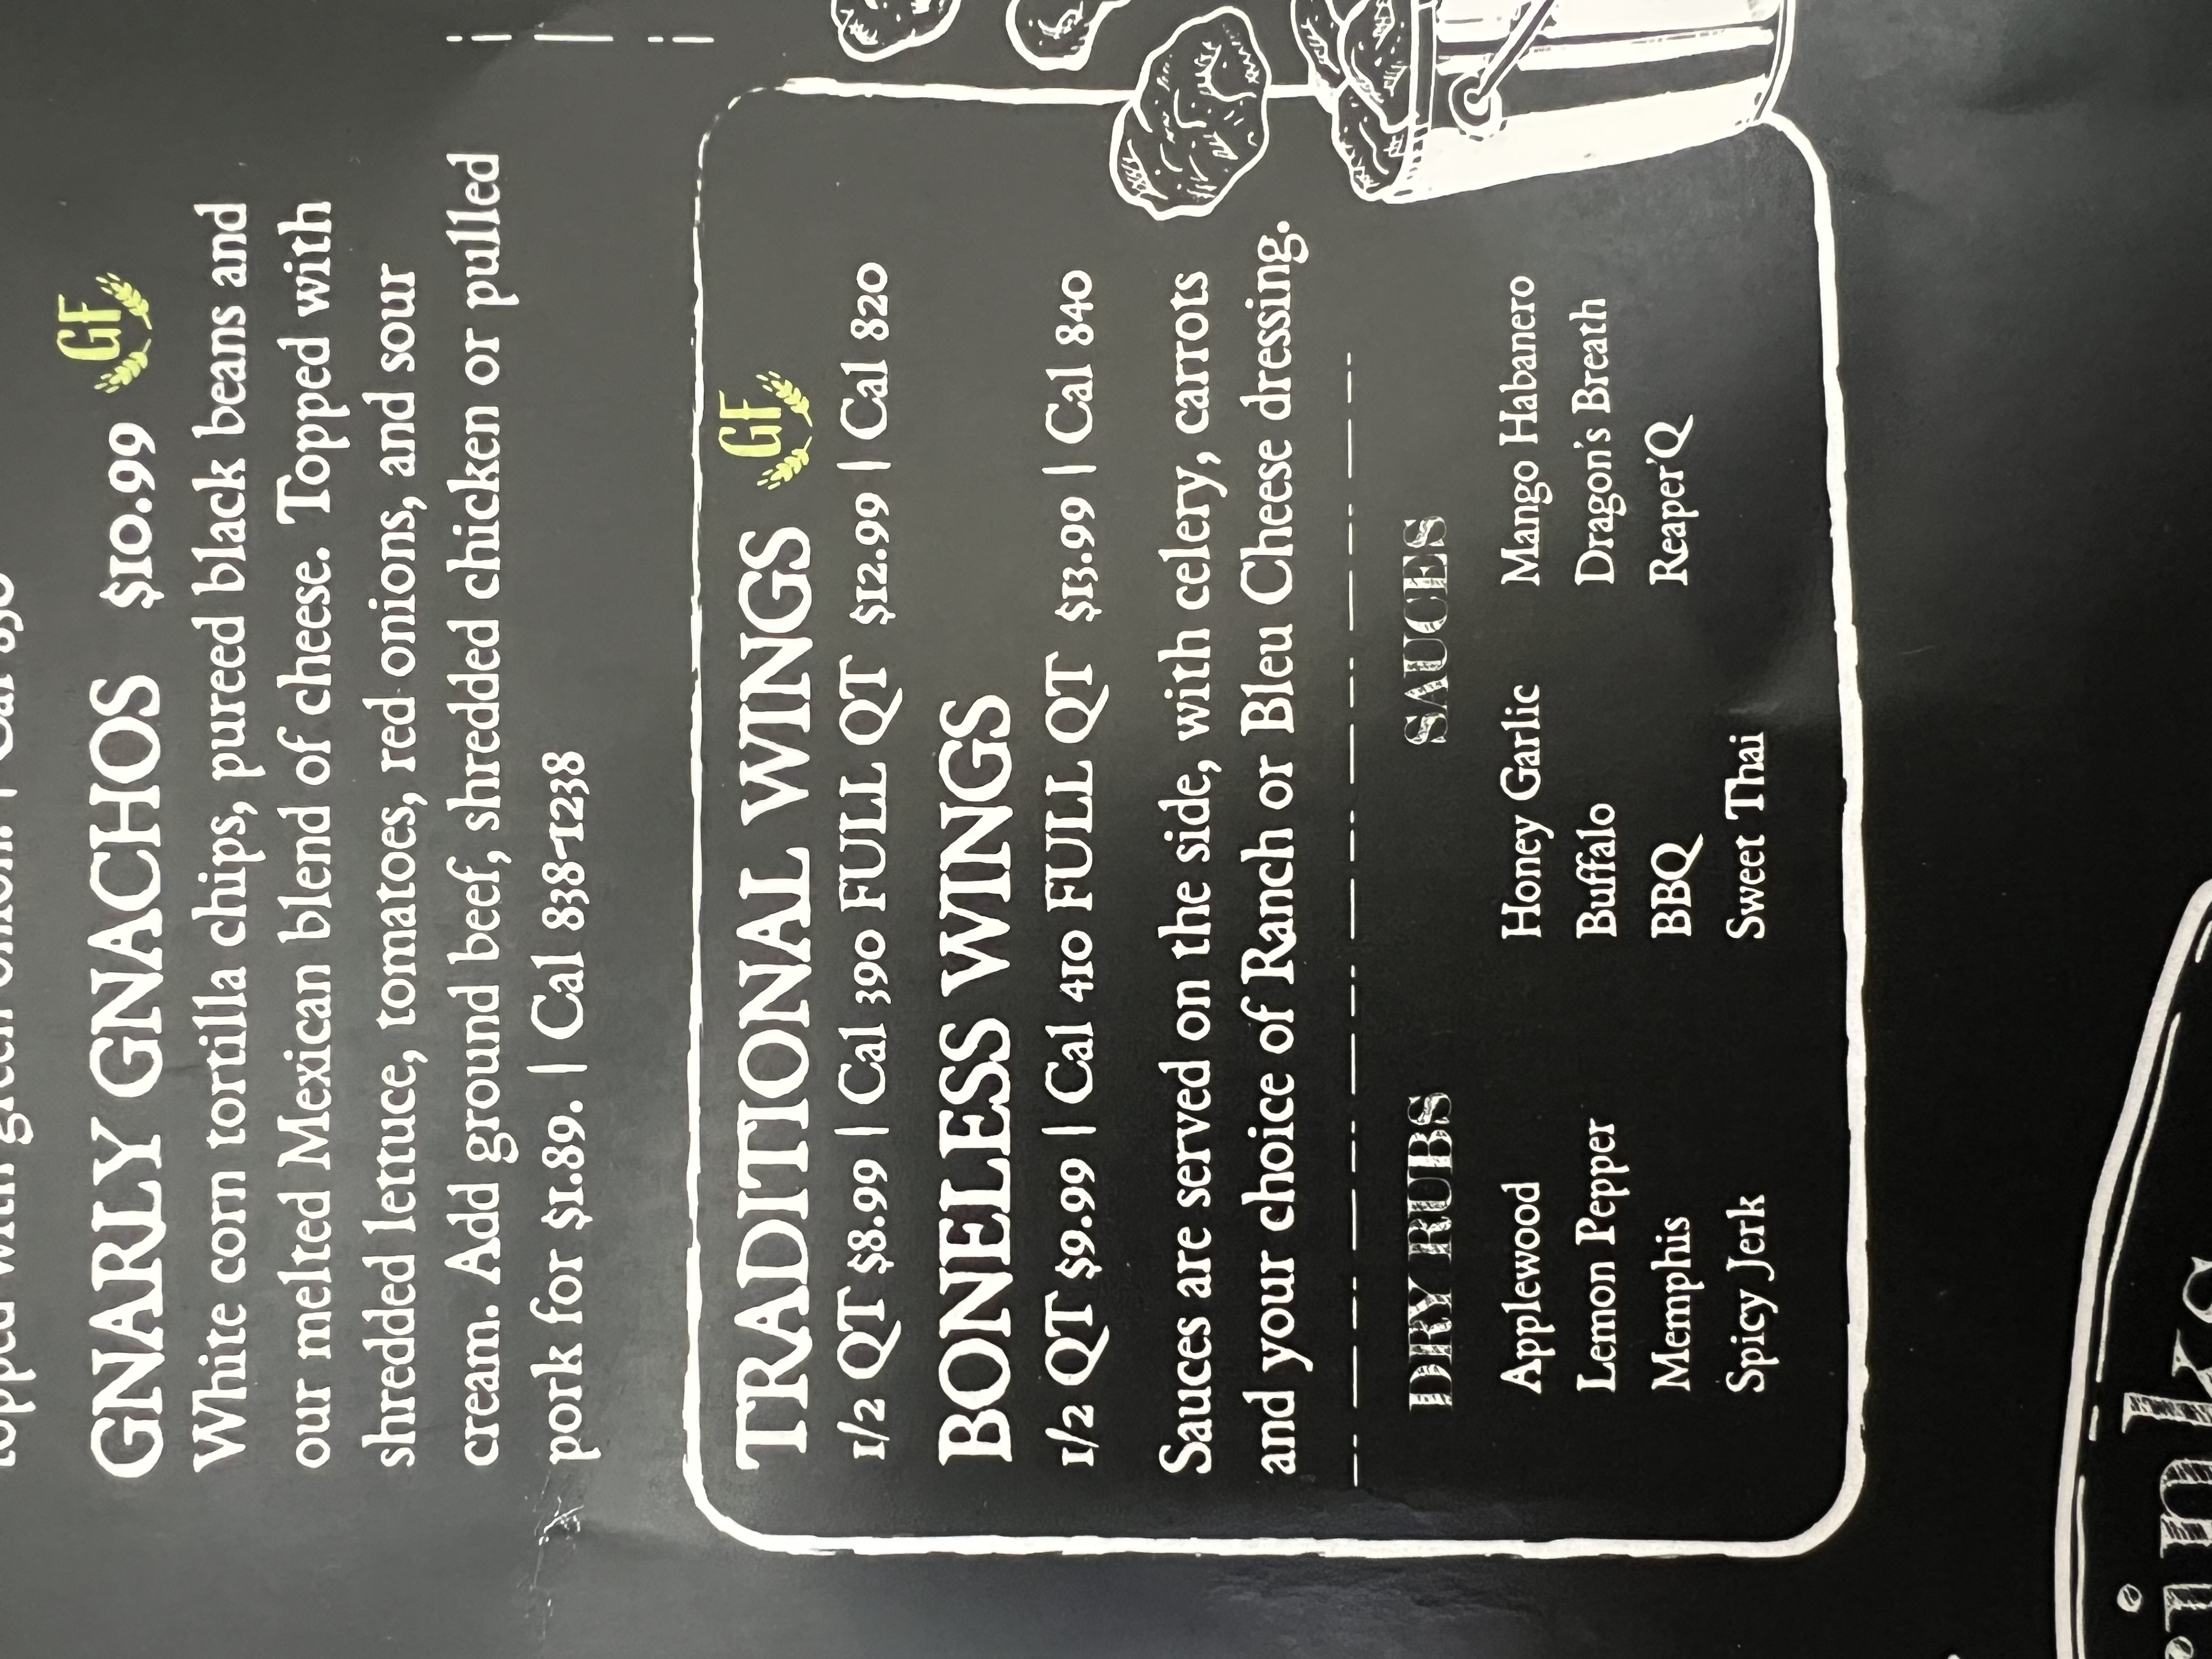 topped with green onion. | Cal
GNARLY GNACHOS $10.99 GF
White corn tortilla chips, pureed black beans and
our melted Mexican blend of cheese. Topped with
shredded lettuce, tomatoes, red onions, and sour
cream. Add ground beef, shredded chicken or pulled
pork for $1.89. | Cal 838-1238
TRADITIONAL WINGS GF
1/2 QT $8.99 | Cal 390 FULL QT $12.99 | Cal 820
BONELESS WINGS
1/2 QT $9.99 | Cal 410 FULL QT $13.99 | Cal 840
Sauces are served on the side, with celery, carrots
and your choice of Ranch or Bleu Cheese dressing.
DRY RUBS
Applewood
Lemon Pepper
Memphis
Spicy Jerk
SAUCES
Honey Garlic
Buffalo
BBQ
Sweet Thai
Mango Habanero
Dragon's Breath
Reaper'Q